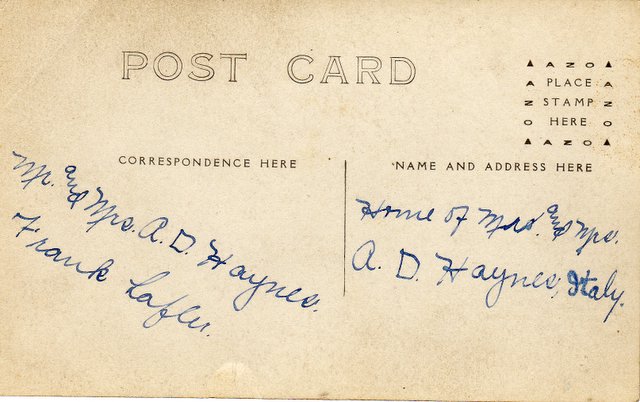 POST CARD
▲ AZO ▲
A PLACE A
N STAMP N
O HERE O
▲ AZO ▲
CORRESPONDENCE HERE
NAME AND ADDRESS HERE
Mr. and Mrs. A. D. Haynes.
Frank Lafler.
Home of Mrs. and Mrs.
A. D. Haynes, Italy.